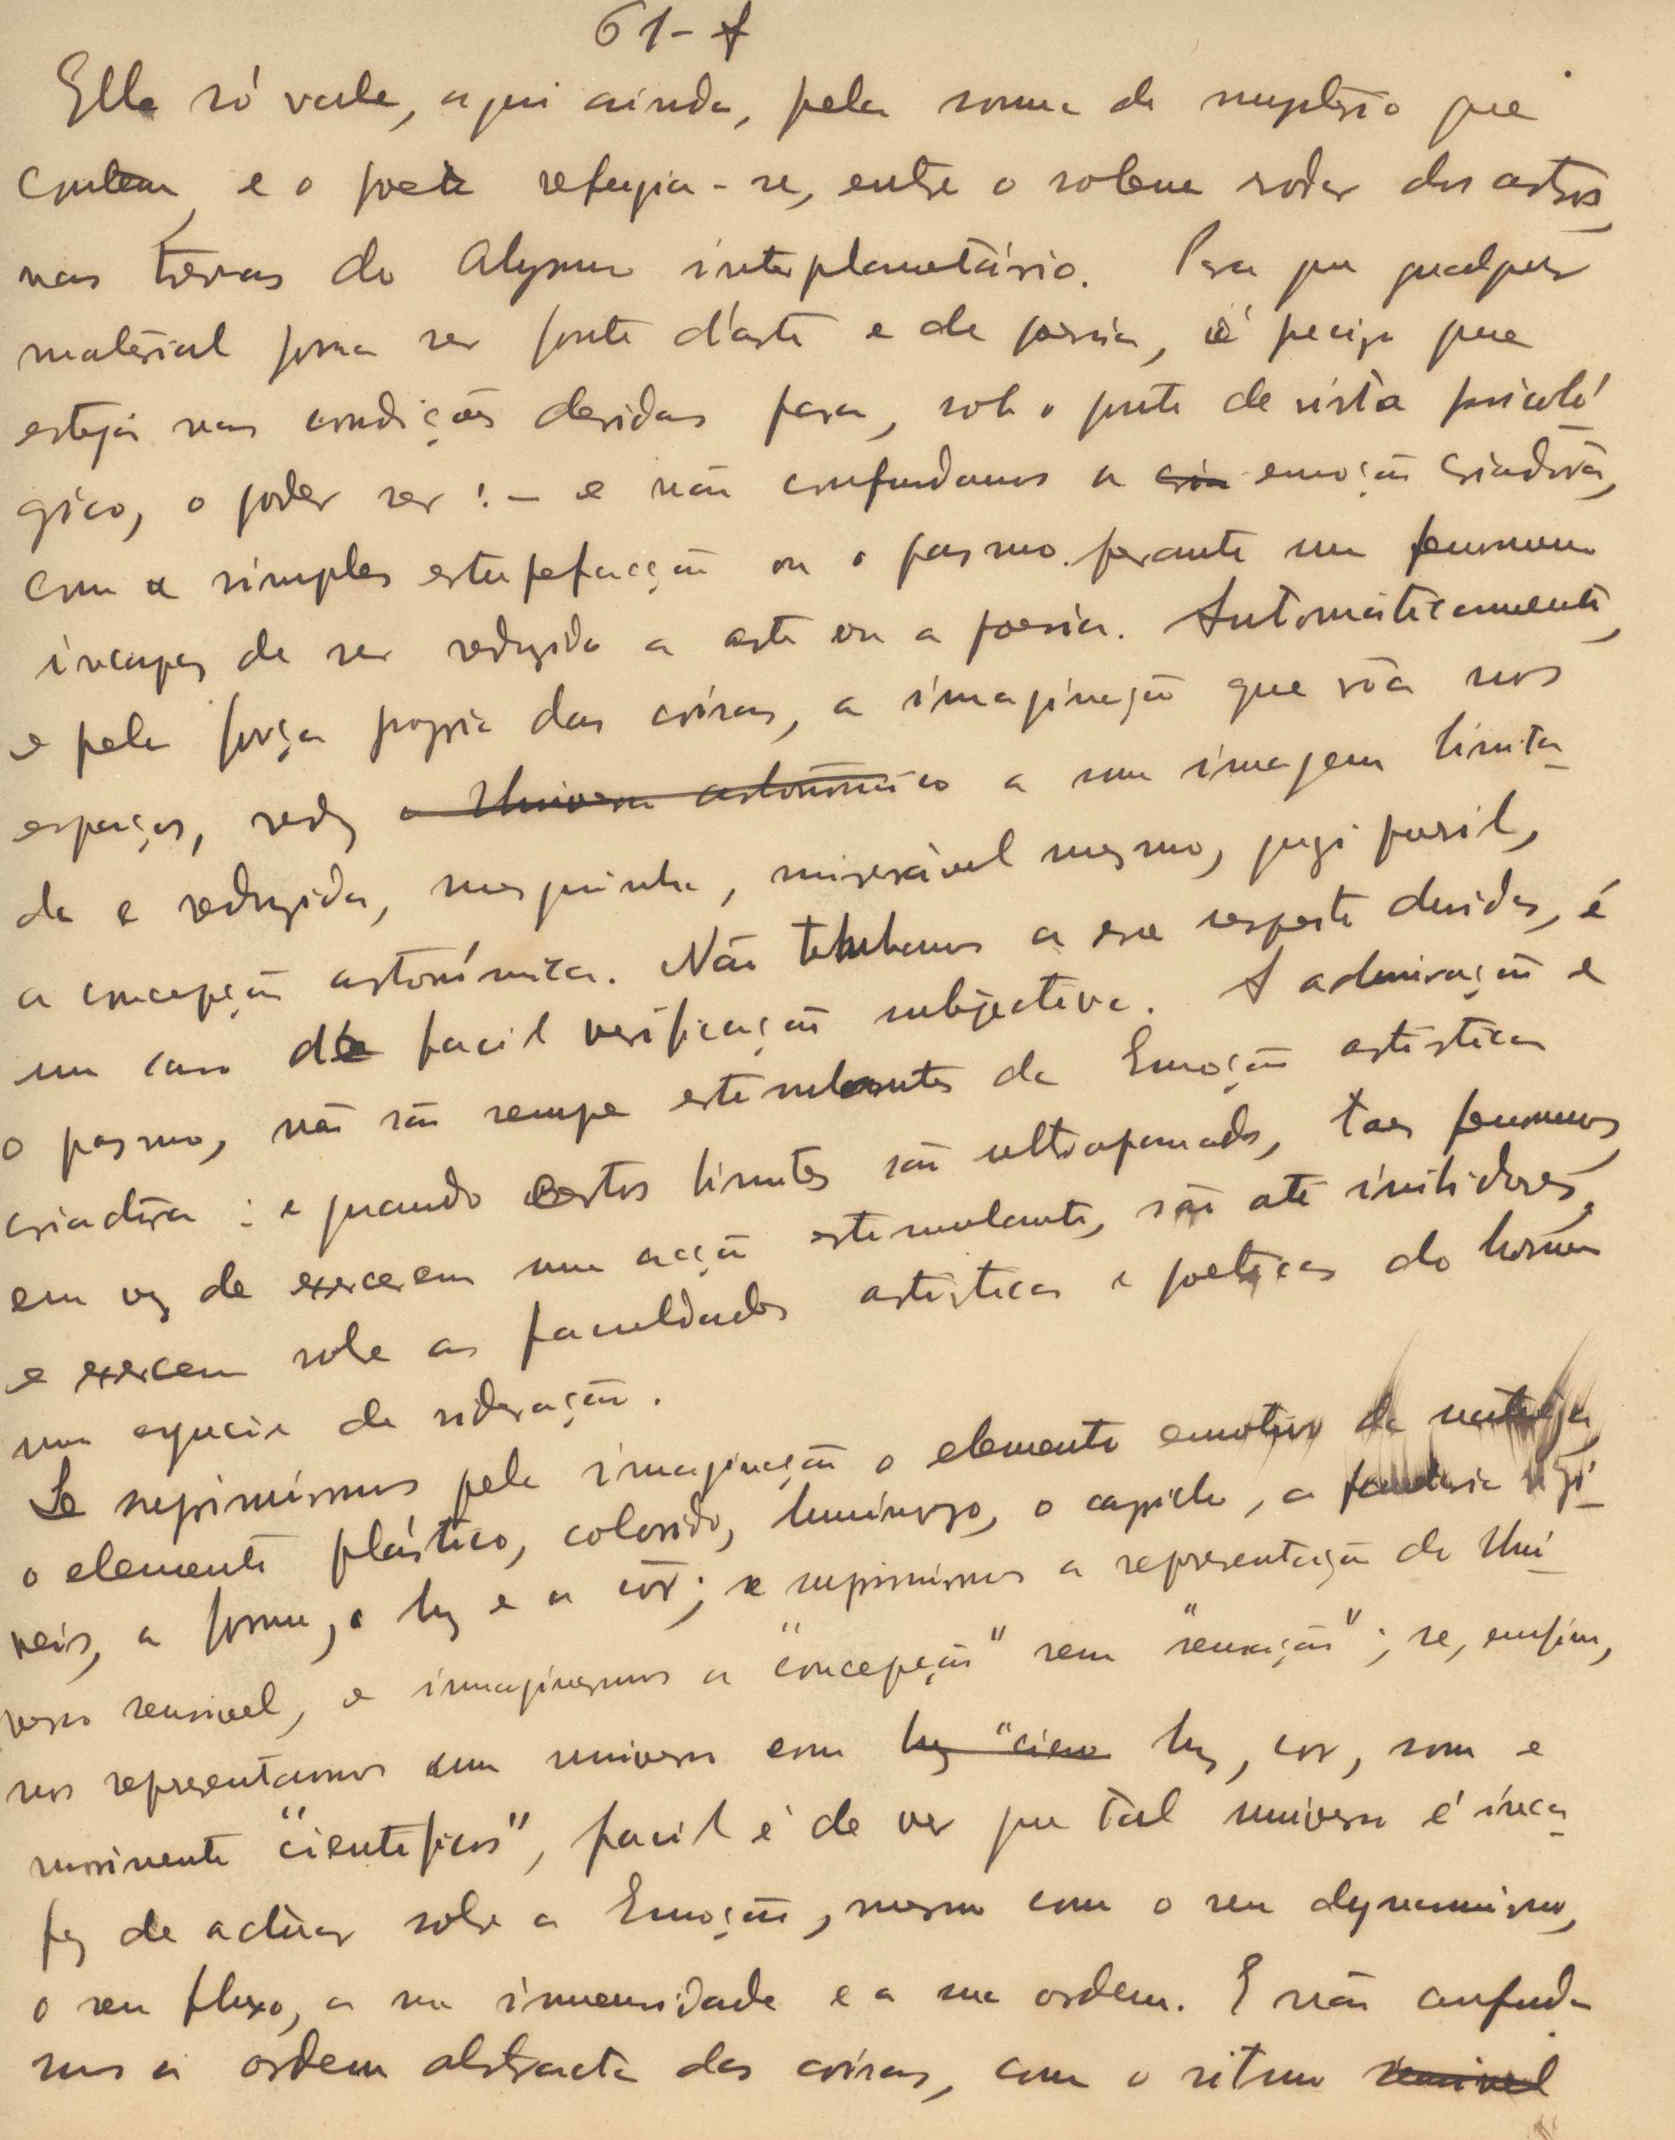 61-A
Ella só vale, aqui ainda, pela somma de mysterio que
contem, e o poeta refugia-se, entre o solene rodar dos astros,
nas trevas do Abysmo interplanetário. Para que qualquer
material possa ser fonte d'arte e de poesia, é preciso que
esteja nas condições devidas para, sob o ponto de vista psicoló-
gico, o poder ser: - e não confundamos a cria emoção criadora,
com a simples estupefacção ou o pasmo perante um fenomeno
incapaz de ser reduzido a arte ou a poesia. Automáticamente,
e pela força propria das coisas, a imaginação que vôa nos
espaços, reduz o Universo astronómico a uma imagem limita-
da e reduzida, mesquinha, miserável mesmo, quasi pueril,
a concepção astronómica. Não tenhamos a esse respeito duvidas, é
um caso de facil verificação subjectiva. A admiração e
o pasmo, não são sempre estimulantes da Emoção artistica
criadora: e quando certos limites são ultrapassados, taes fenomenos,
em vez de exercerem uma acção estimulante, são até inibidores,
e exercem sobre as faculdades artisticas e poeticas do homem
uma especie de sideração.
Se suprimirmos pela imaginação o elemento emotivo da natureza,
o elemento plástico, colorido, luminoso, o capricho, a fantasia
a forma, a luz e a côr; se suprimirmos a representação do Uni-
verso sensivel, e imaginarmos a "concepção" sem "sensação"; se, emfim,
nos representarmos um universo com luz "cien luz, cor, som e
movimento "cientificos", facil é de ver que tal universo é inca-
paz de actuar sobre a Emoção, mesmo com o seu dynamismo,
o seu fluxo, a sua immensidade e a sua ordem. E não confunda-
mos a ordem abstracta das coisas, com o ritmo sensivel